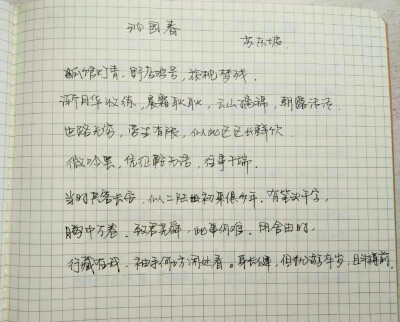 沁园春
苏东坡
孤馆灯青，野店鸡号，旅枕梦残，
渐月华收练，晨霜耿耿，云山摛锦，朝露漙漙，
世路无穷，劳生有限，似此区区长鲜欢，
微吟罢，凭征鞍无语，往事千端，
当时共客长安，似二陆初来俱少年，有笔头千字，
胸中万卷，致君尧舜，此事何难，用舍由时，
行藏在我，袖手何妨闲处看。身长健，但优游卒岁，且斗尊前，